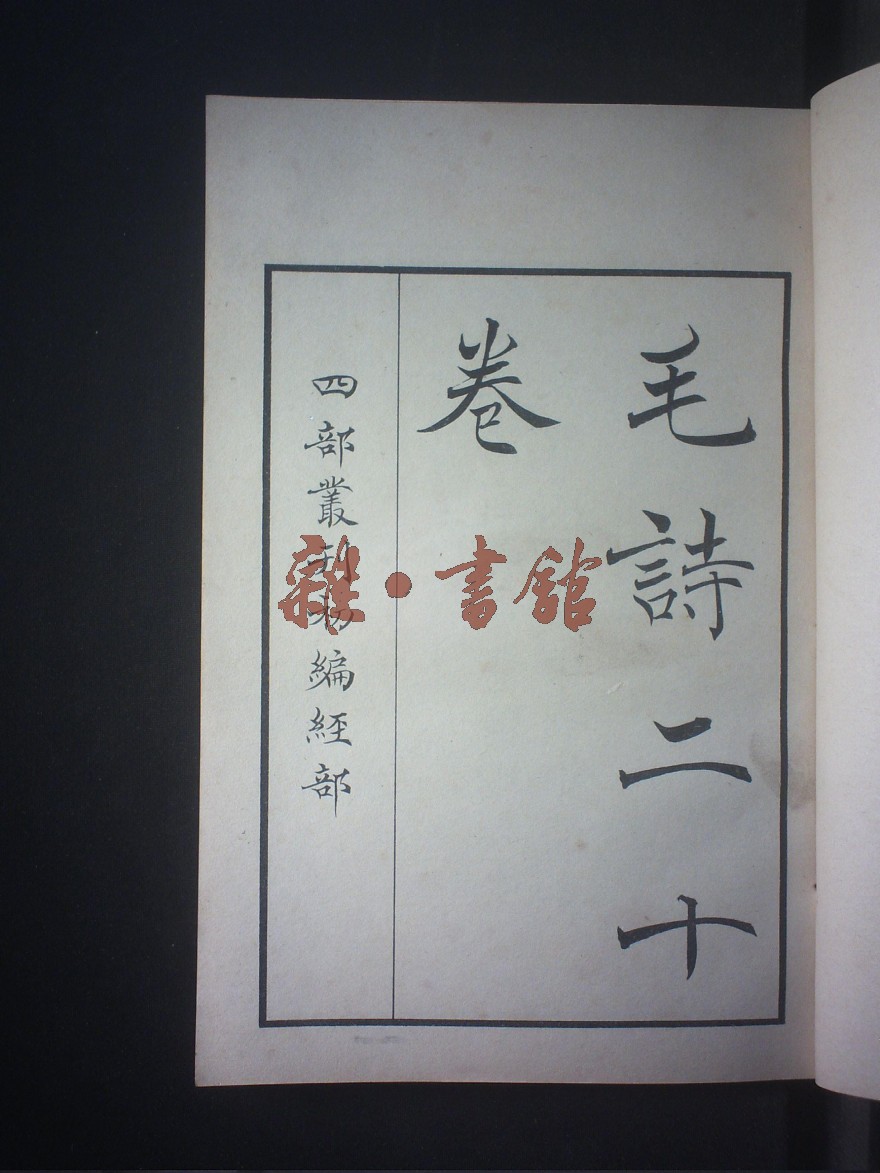 毛詩二十
卷
四部叢刊初編經部
雜·書館